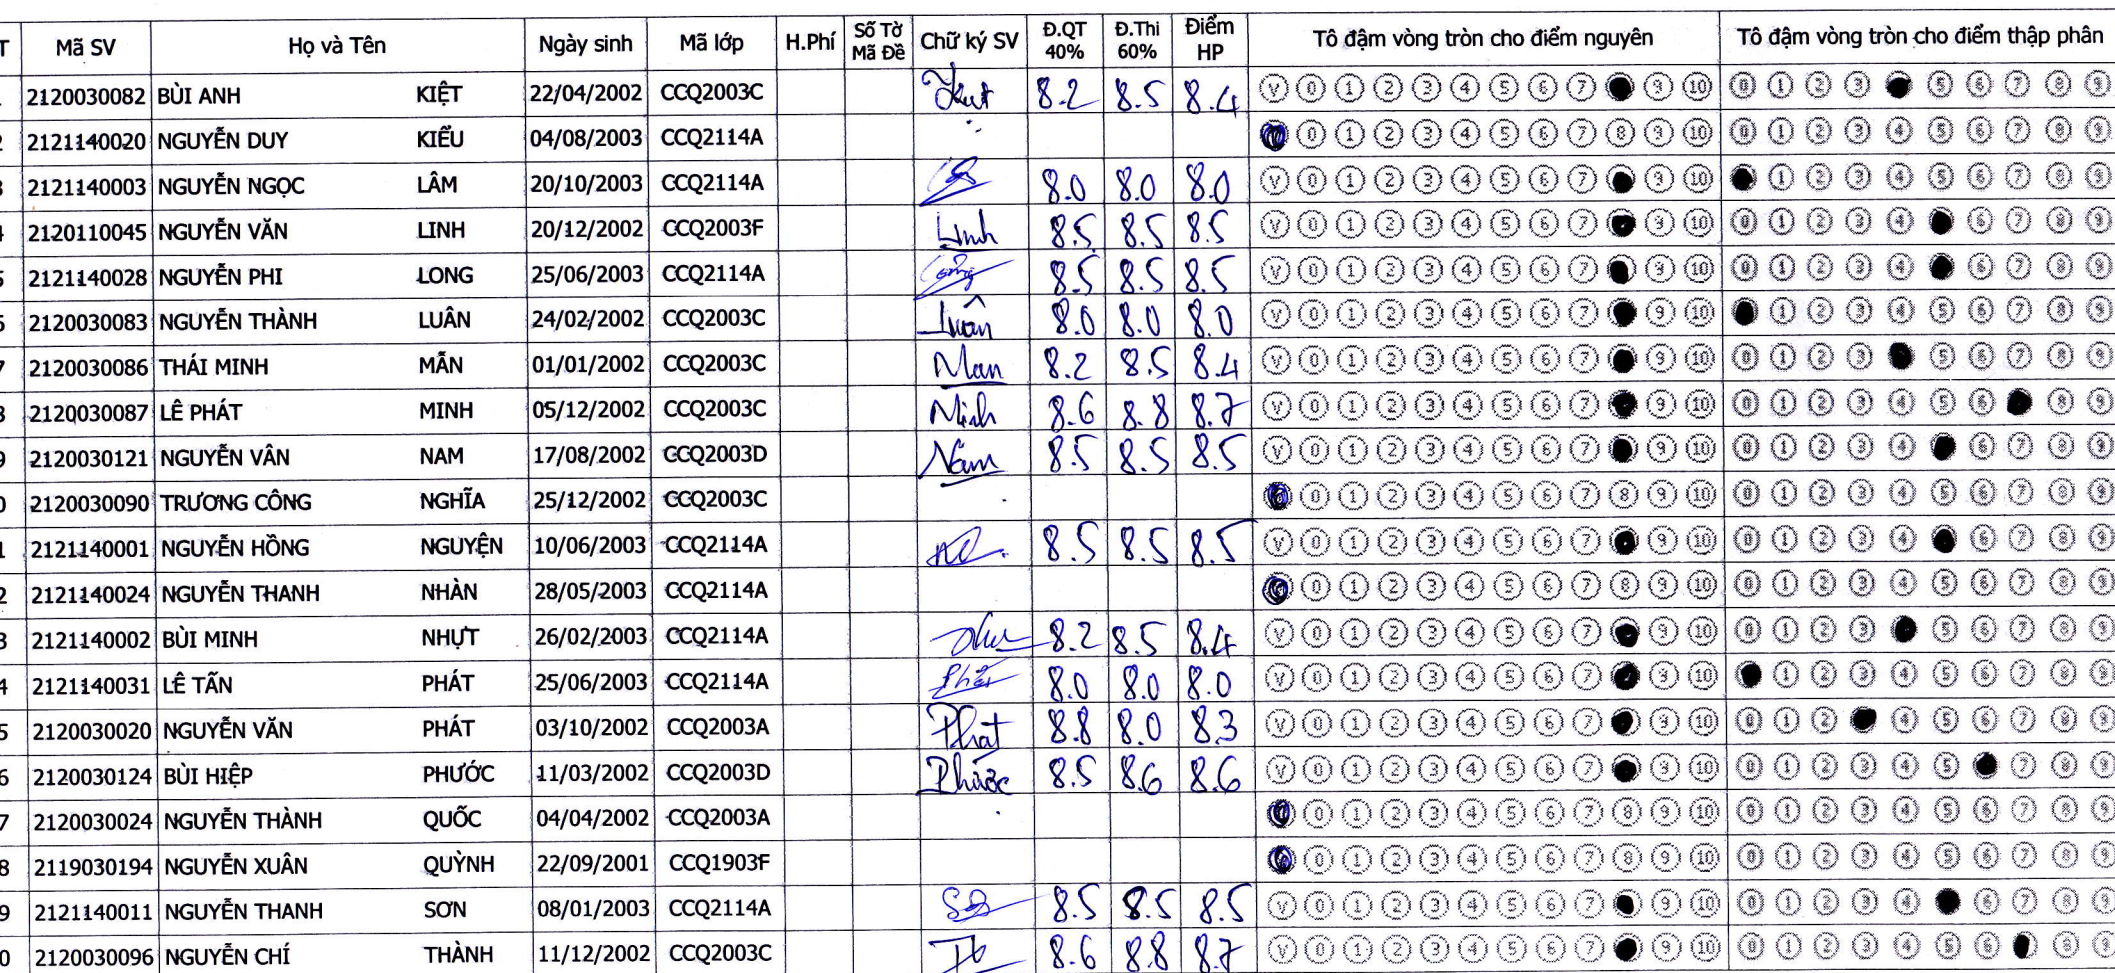 T Mã SV Họ và Tên Ngày sinh Mã lớp H.Phí Số Tờ Mã Đề Chữ ký SV Đ.QT 40% Đ.Thi 60% Điểm HP Tô đậm vòng tròn cho điểm nguyên Tô đậm vòng tròn cho điểm thập phân
2120030082 BÙI ANH KIỆT 22/04/2002 CCQ2003C Kiệt 8.2 8.5 8.4 V 0 1 2 3 4 5 6 7 9 10 0 1 2 3 5 6 7 8 9
2 2121140020 NGUYỄN DUY KIỂU 04/08/2003 CCQ2114A 0 1 2 3 4 5 6 7 8 9 10 0 1 2 3 4 5 6 7 8 9
3 2121140003 NGUYỄN NGỌC LÂM 20/10/2003 CCQ2114A 8.0 8.0 8.0 V 0 1 2 3 4 5 6 7 9 10 1 2 3 4 5 6 7 8 9
4 2120110045 NGUYỄN VĂN LINH 20/12/2002 CCQ2003F Linh 8.5 8.5 8.5 V 0 1 2 3 4 5 6 7 9 10 0 1 2 3 4 6 7 8 9
5 2121140028 NGUYỄN PHI LONG 25/06/2003 CCQ2114A 8.5 8.5 8.5 V 0 1 2 3 4 5 6 7 9 10 0 1 2 3 4 6 7 8 9
6 2120030083 NGUYỄN THÀNH LUÂN 24/02/2002 CCQ2003C Luân 8.0 8.0 8.0 V 0 1 2 3 4 5 6 7 9 10 1 2 3 4 5 6 7 8 9
7 2120030086 THÁI MINH MẪN 01/01/2002 CCQ2003C Man 8.2 8.5 8.4 V 0 1 2 3 4 5 6 7 9 10 0 1 2 3 5 6 7 8 9
8 2120030087 LÊ PHÁT MINH 05/12/2002 CCQ2003C Minh 8.6 8.8 8.7 V 0 1 2 3 4 5 6 7 9 10 0 1 2 3 4 5 6 8 9
9 2120030121 NGUYỄN VÂN NAM 17/08/2002 CCQ2003D Nam 8.5 8.5 8.5 V 0 1 2 3 4 5 6 7 9 10 0 1 2 3 4 6 7 8 9
0 2120030090 TRƯƠNG CÔNG NGHĨA 25/12/2002 CCQ2003C 0 1 2 3 4 5 6 7 8 9 10 0 1 2 3 4 5 6 7 8 9
1 2121140001 NGUYỄN HỒNG NGUYỆN 10/06/2003 CCQ2114A 8.5 8.5 8.5 V 0 1 2 3 4 5 6 7 9 10 0 1 2 3 4 6 7 8 9
2 2121140024 NGUYỄN THANH NHÀN 28/05/2003 CCQ2114A 0 1 2 3 4 5 6 7 8 9 10 0 1 2 3 4 5 6 7 8 9
3 2121140002 BÙI MINH NHỰT 26/02/2003 CCQ2114A 8.2 8.5 8.4 V 0 1 2 3 4 5 6 7 9 10 0 1 2 3 5 6 7 8 9
4 2121140031 LÊ TẤN PHÁT 25/06/2003 CCQ2114A Phát 8.0 8.0 8.0 V 0 1 2 3 4 5 6 7 9 10 1 2 3 4 5 6 7 8 9
5 2120030020 NGUYỄN VĂN PHÁT 03/10/2002 CCQ2003A Phat 8.8 8.0 8.3 V 0 1 2 3 4 5 6 7 9 10 0 1 2 4 5 6 7 8 9
6 2120030124 BÙI HIỆP PHƯỚC 11/03/2002 CCQ2003D Phước 8.5 8.6 8.6 V 0 1 2 3 4 5 6 7 9 10 0 1 2 3 4 5 7 8 9
7 2120030024 NGUYỄN THÀNH QUỐC 04/04/2002 CCQ2003A 0 1 2 3 4 5 6 7 8 9 10 0 1 2 3 4 5 6 7 8 9
8 2119030194 NGUYỄN XUÂN QUỲNH 22/09/2001 CCQ1903F 0 1 2 3 4 5 6 7 8 9 10 0 1 2 3 4 5 6 7 8 9
9 2121140011 NGUYỄN THANH SƠN 08/01/2003 CCQ2114A 8.5 8.5 8.5 V 0 1 2 3 4 5 6 7 9 10 0 1 2 3 4 6 7 8 9
0 2120030096 NGUYỄN CHÍ THÀNH 11/12/2002 CCQ2003C 8.6 8.8 8.7 V 0 1 2 3 4 5 6 7 9 10 0 1 2 3 4 5 6 8 9